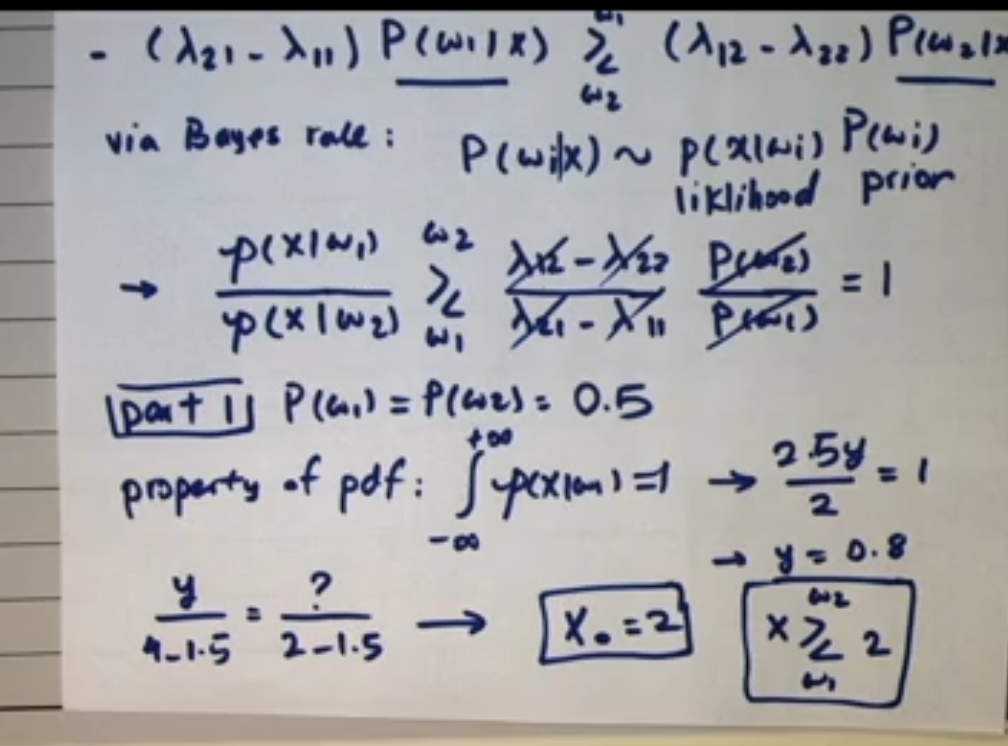 - (λ21 - λ11) P(ω1|x) ≷ (λ12 - λ22) P(ω2|x
ω1
ω2
via Bayes rule : P(ωi|x) ~ p(x|ωi) P(ωi)
liklihood prior
→ p(x|ω1) / p(x|ω2) ≷ (λ12 - λ22) / (λ21 - λ11) P(ω2) / P(ω1) = 1
ω2
ω1
part 1 P(ω1) = P(ω2) = 0.5
property of pdf : ∫ -∞ +∞ p(x|ω1) = 1 → 2.5y / 2 = 1
→ y = 0.8
y / 4-1.5 = ? / 2-1.5 → x0 = 2
x ≷ 2
ω2
ω1